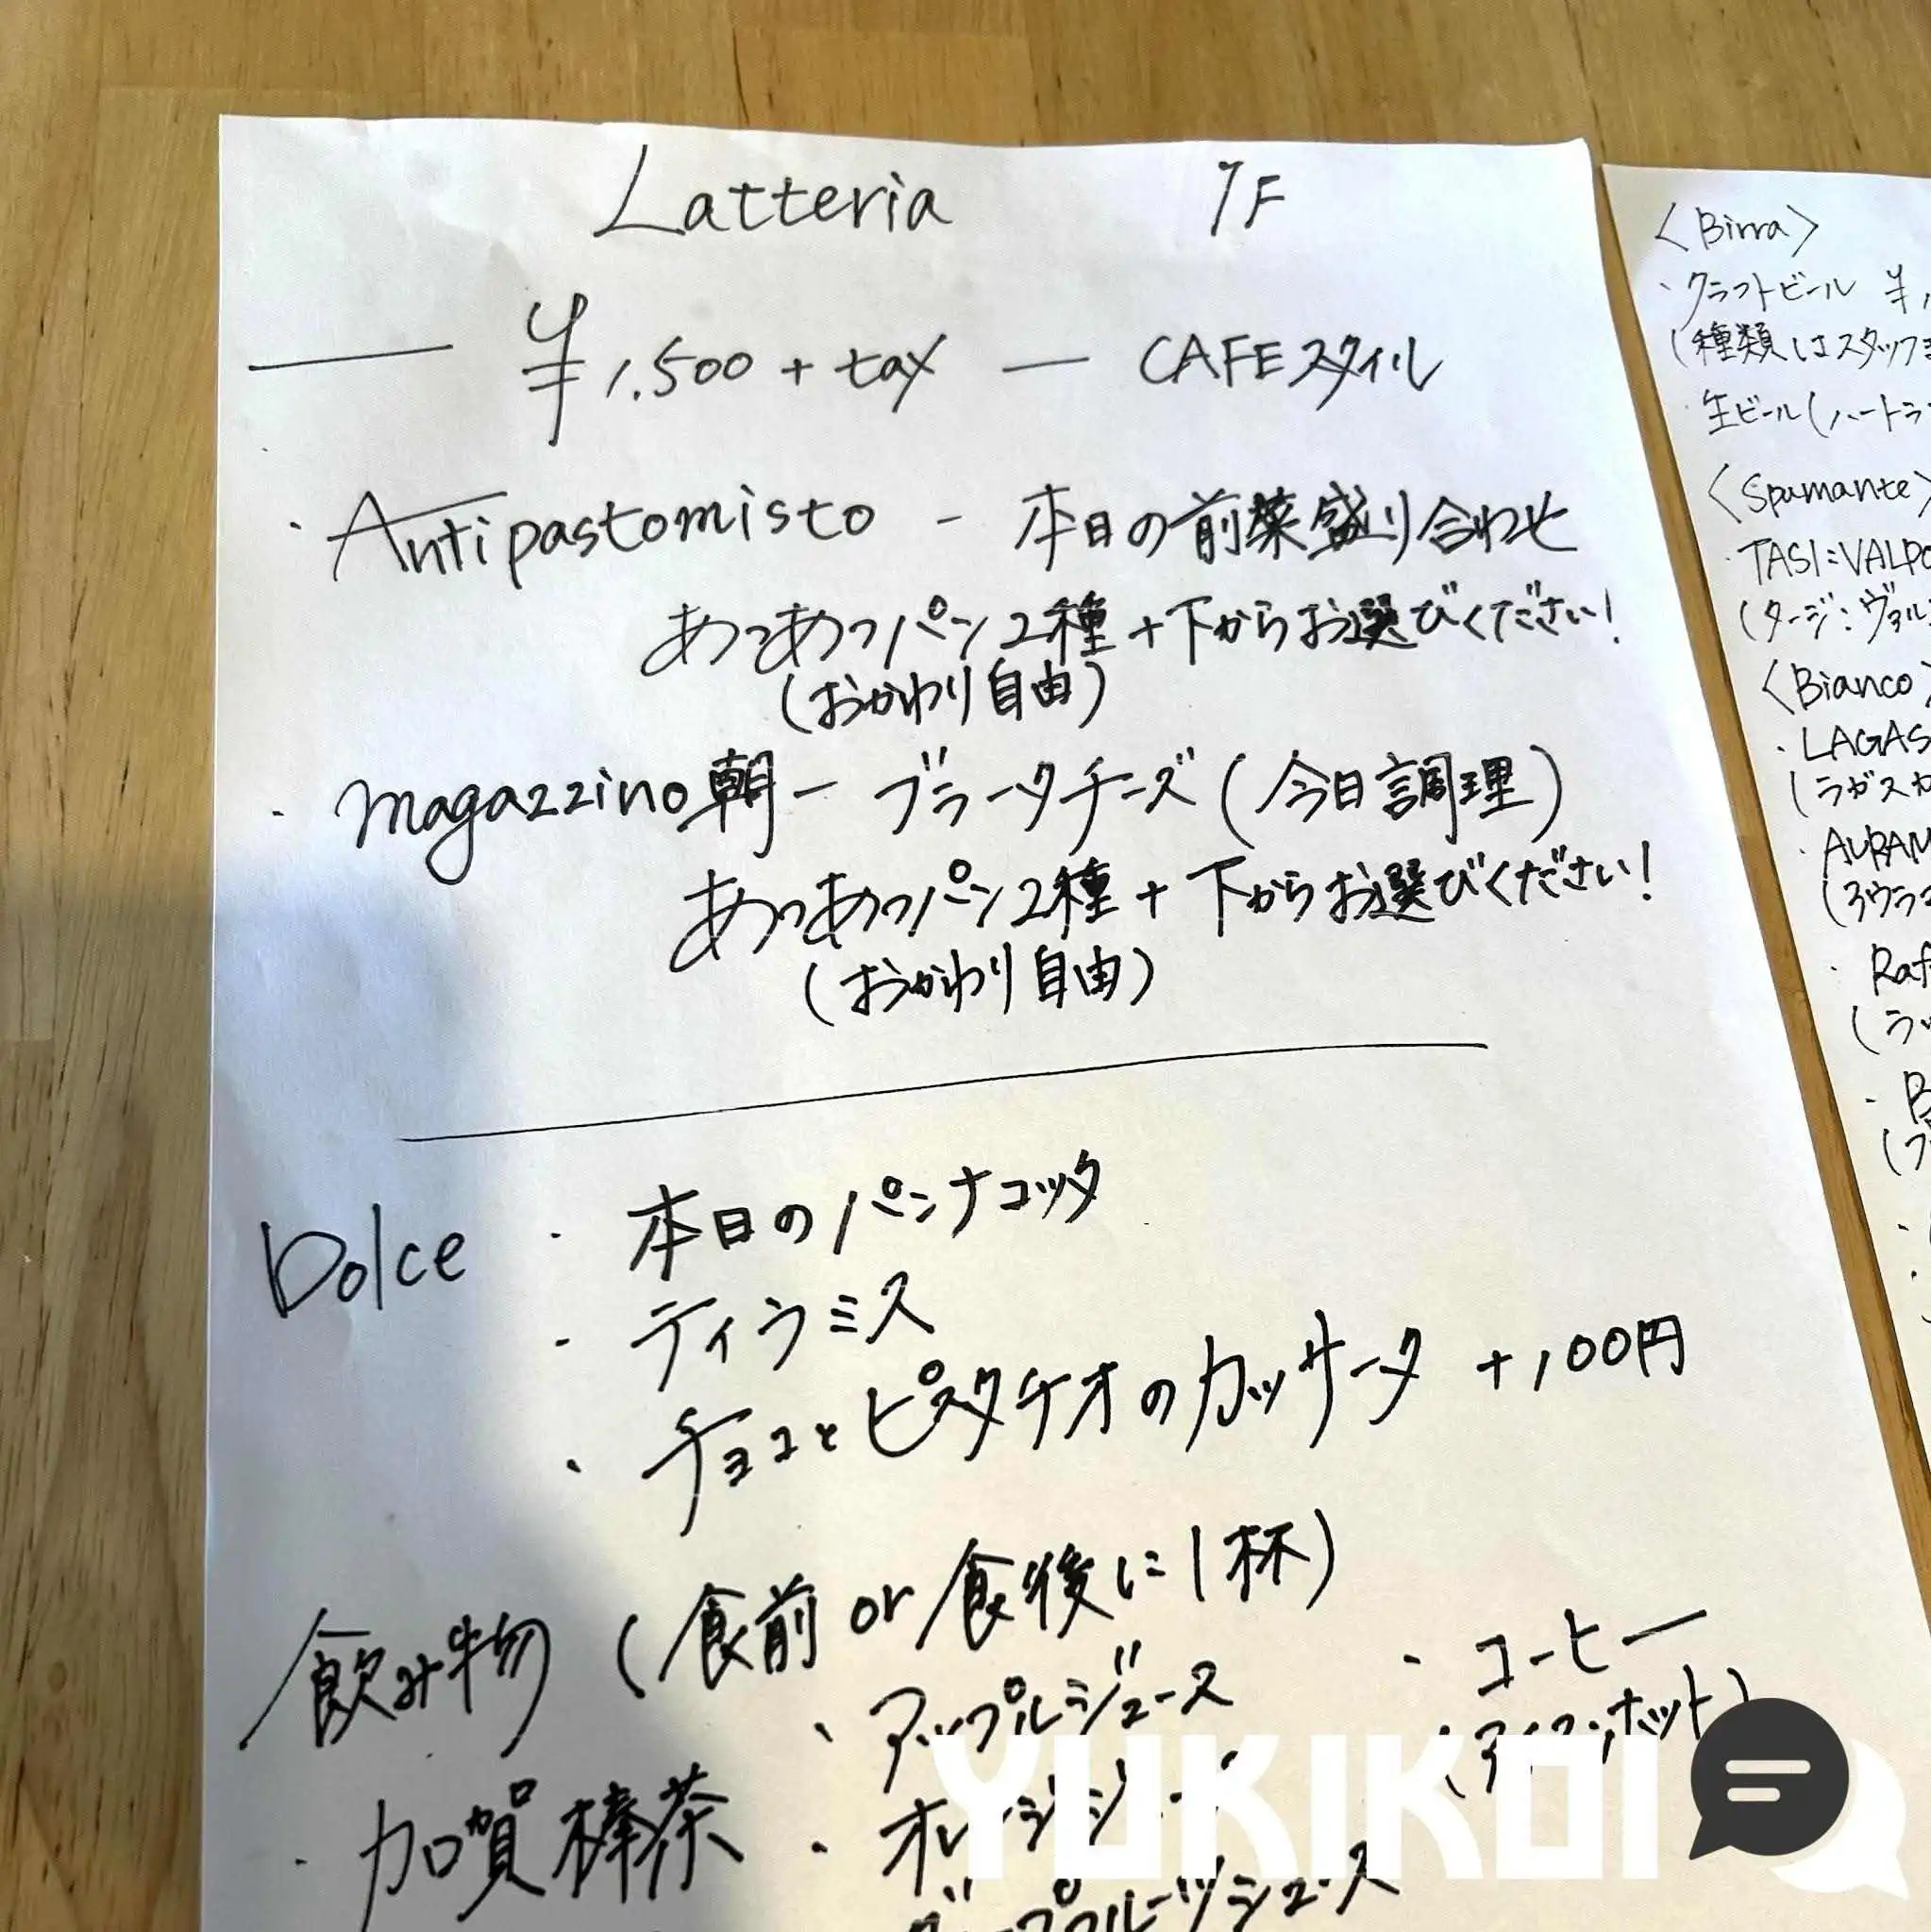 Latteria 1F
¥1.500 + tax — CAFEスタイル
・Antipastomisto - 本日の前菜盛り合わせ
あつあつパン2種+下からお選びください!
(おかわり自由)
・magazzino朝 - ブラータチーズ(今日調理)
あつあつパン2種+下からお選びください!
(おかわり自由)
Dolce ・本日のパンナコッタ
・ティラミス
・チョコとピスタチオのカッサータ +100円
飲み物 (食前or食後に1杯)
・加賀棒茶
・アップルジュース
・オレンジジュース
グレープフルーツジュース
・コーヒー
(アイス,ホット)
<Birra>
・クラフトビール ¥
(種類はスタッフ
生ビール(ハートラ
<Spumante>
・TASI:VALPO
(タージ:ヴァル
<Bianco>
・LAGAS
(ラガスカ
・AURAM
・Raf
(ラッ
YUKIKOI